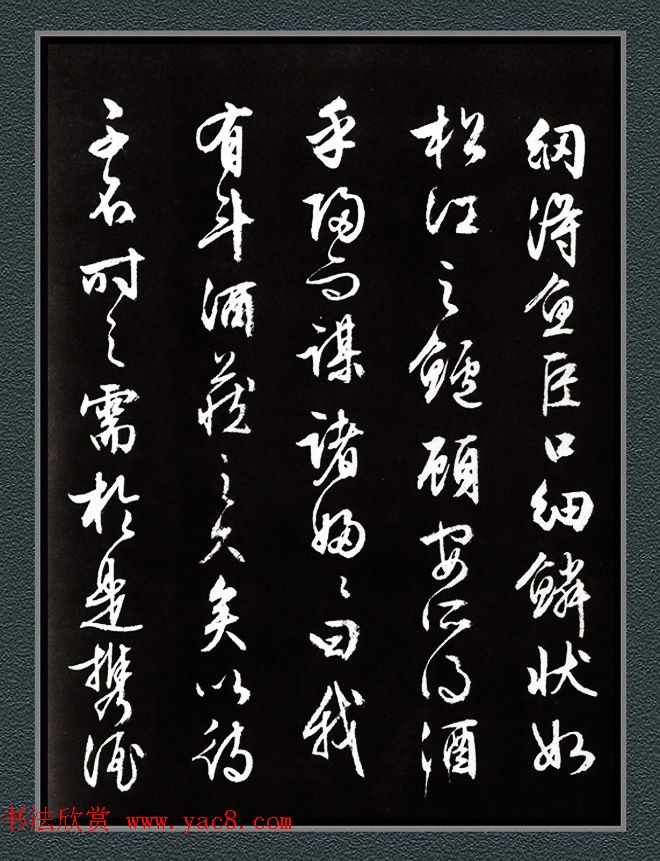 網得魚巨口細鱗狀如
松江之鱸顧安所得酒
乎歸而謀諸婦〻曰我
有斗酒藏之久矣以待
子不時之需於是攜酒
书法欣赏 www.yac8.com